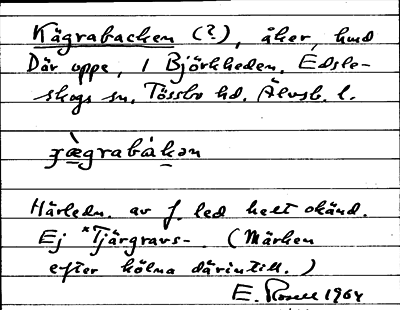 Kägrabacken (?), åker, hmd
Där uppe, / Björkheden. Edsle-
skogs sn, Tössbo hd. Älvsb. l.
ɟæ̀grabákən
Härledn. av f. led helt okänd.
Ej *Tjärgravs-. (Märken
efter kölna därintill.)
E. Rosell 1964